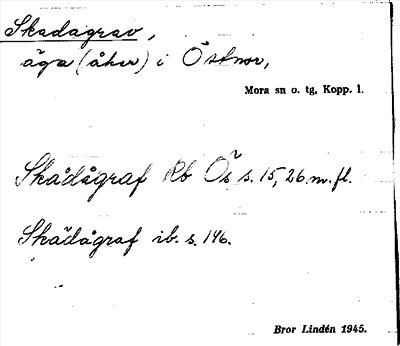 Skadagrav,
äga (åker) i Östnor,
Mora sn o. tg, Kopp. l.
Skådågraf Rb Ös s. 15, 26 m. fl.
Skådågraf ib. s. 146.
Bror Lindén 1945.